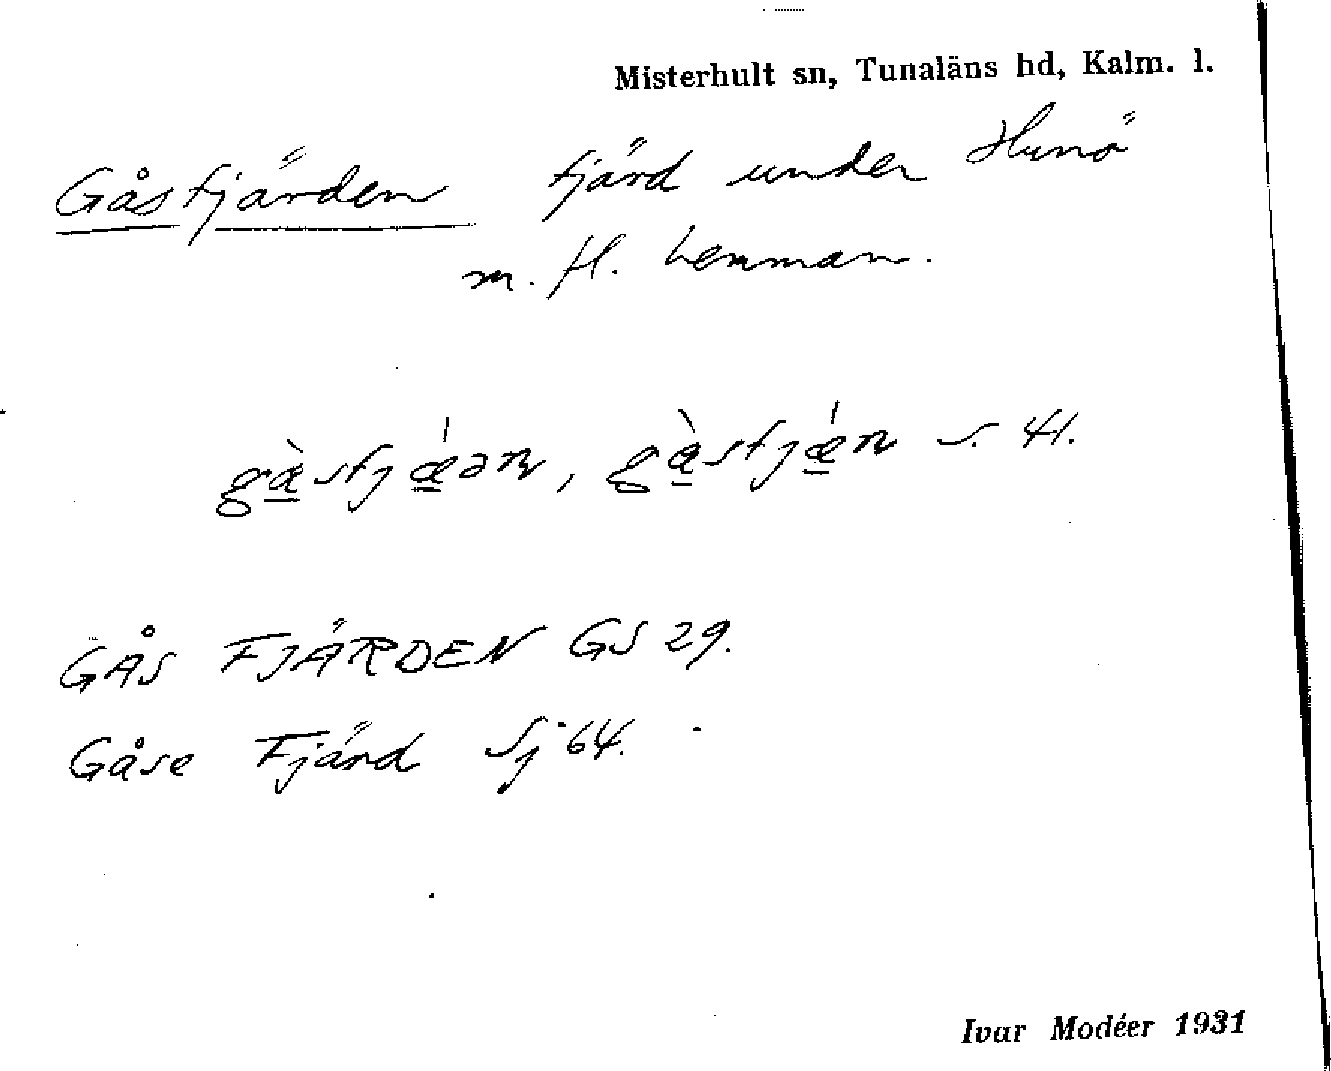 Misterhult sn, Tunaläns hd, Kalm. l.
Gåsfjärden fjärd under Hunö
m. fl. hemman.
gàsfjǽən, gàsfjǽn s. 41.
GÅS FJÄRDEN GS 29.
Gåse Fjärd Sj 64.
Ivar Modéer 1931